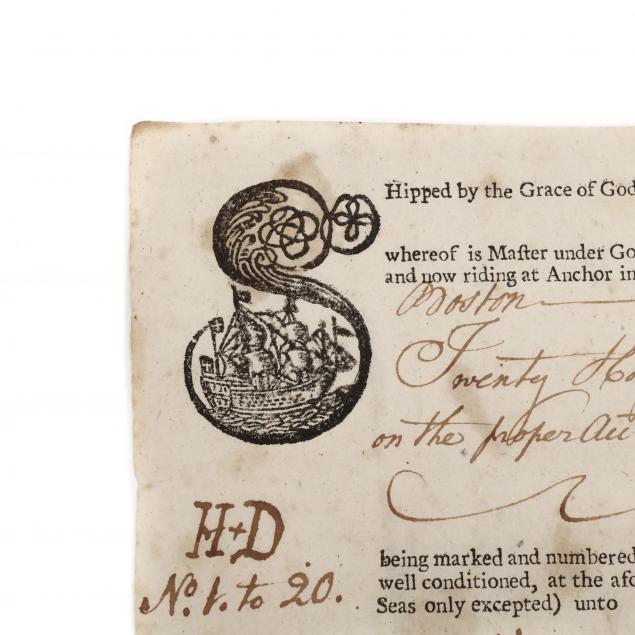 SHipped by the Grace of God
whereof is Maſter under Go
and now riding at Anchor in
Boston
Twenty Ho
on the proper Acct
being marked and numbered
well conditioned, at the afo
Seas only excepted) unto
H+D
No. 1. to 20.